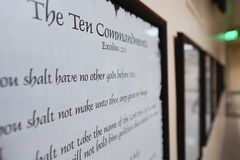 The Ten Commandments
Exodus 20
thou shalt have no other gods before Me
thou shalt not make unto thee any graven image
shalt not take the name of the Lord
will not hold him guiltless that